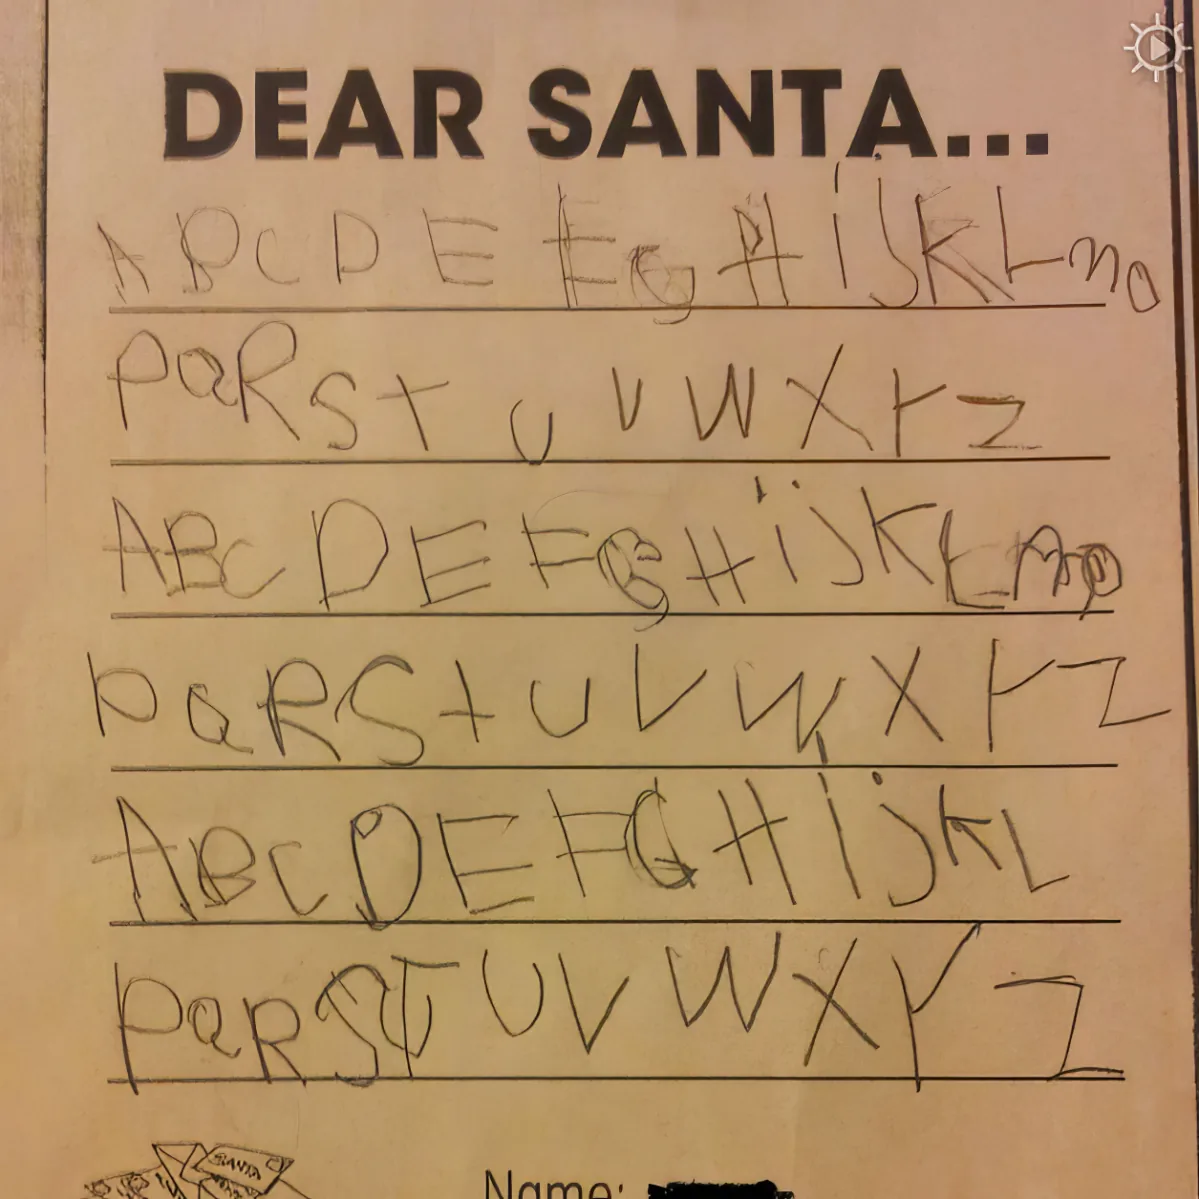 DEAR SANTA...
A B C D E F G H i j K L m o
P Q R S t U V W X Y Z
A B C D E F G H i j K L m o
P Q R S t U V W X Y Z
A B C D E F G H i j K L
P Q R S T U V W X Y Z
SANTA
Name: